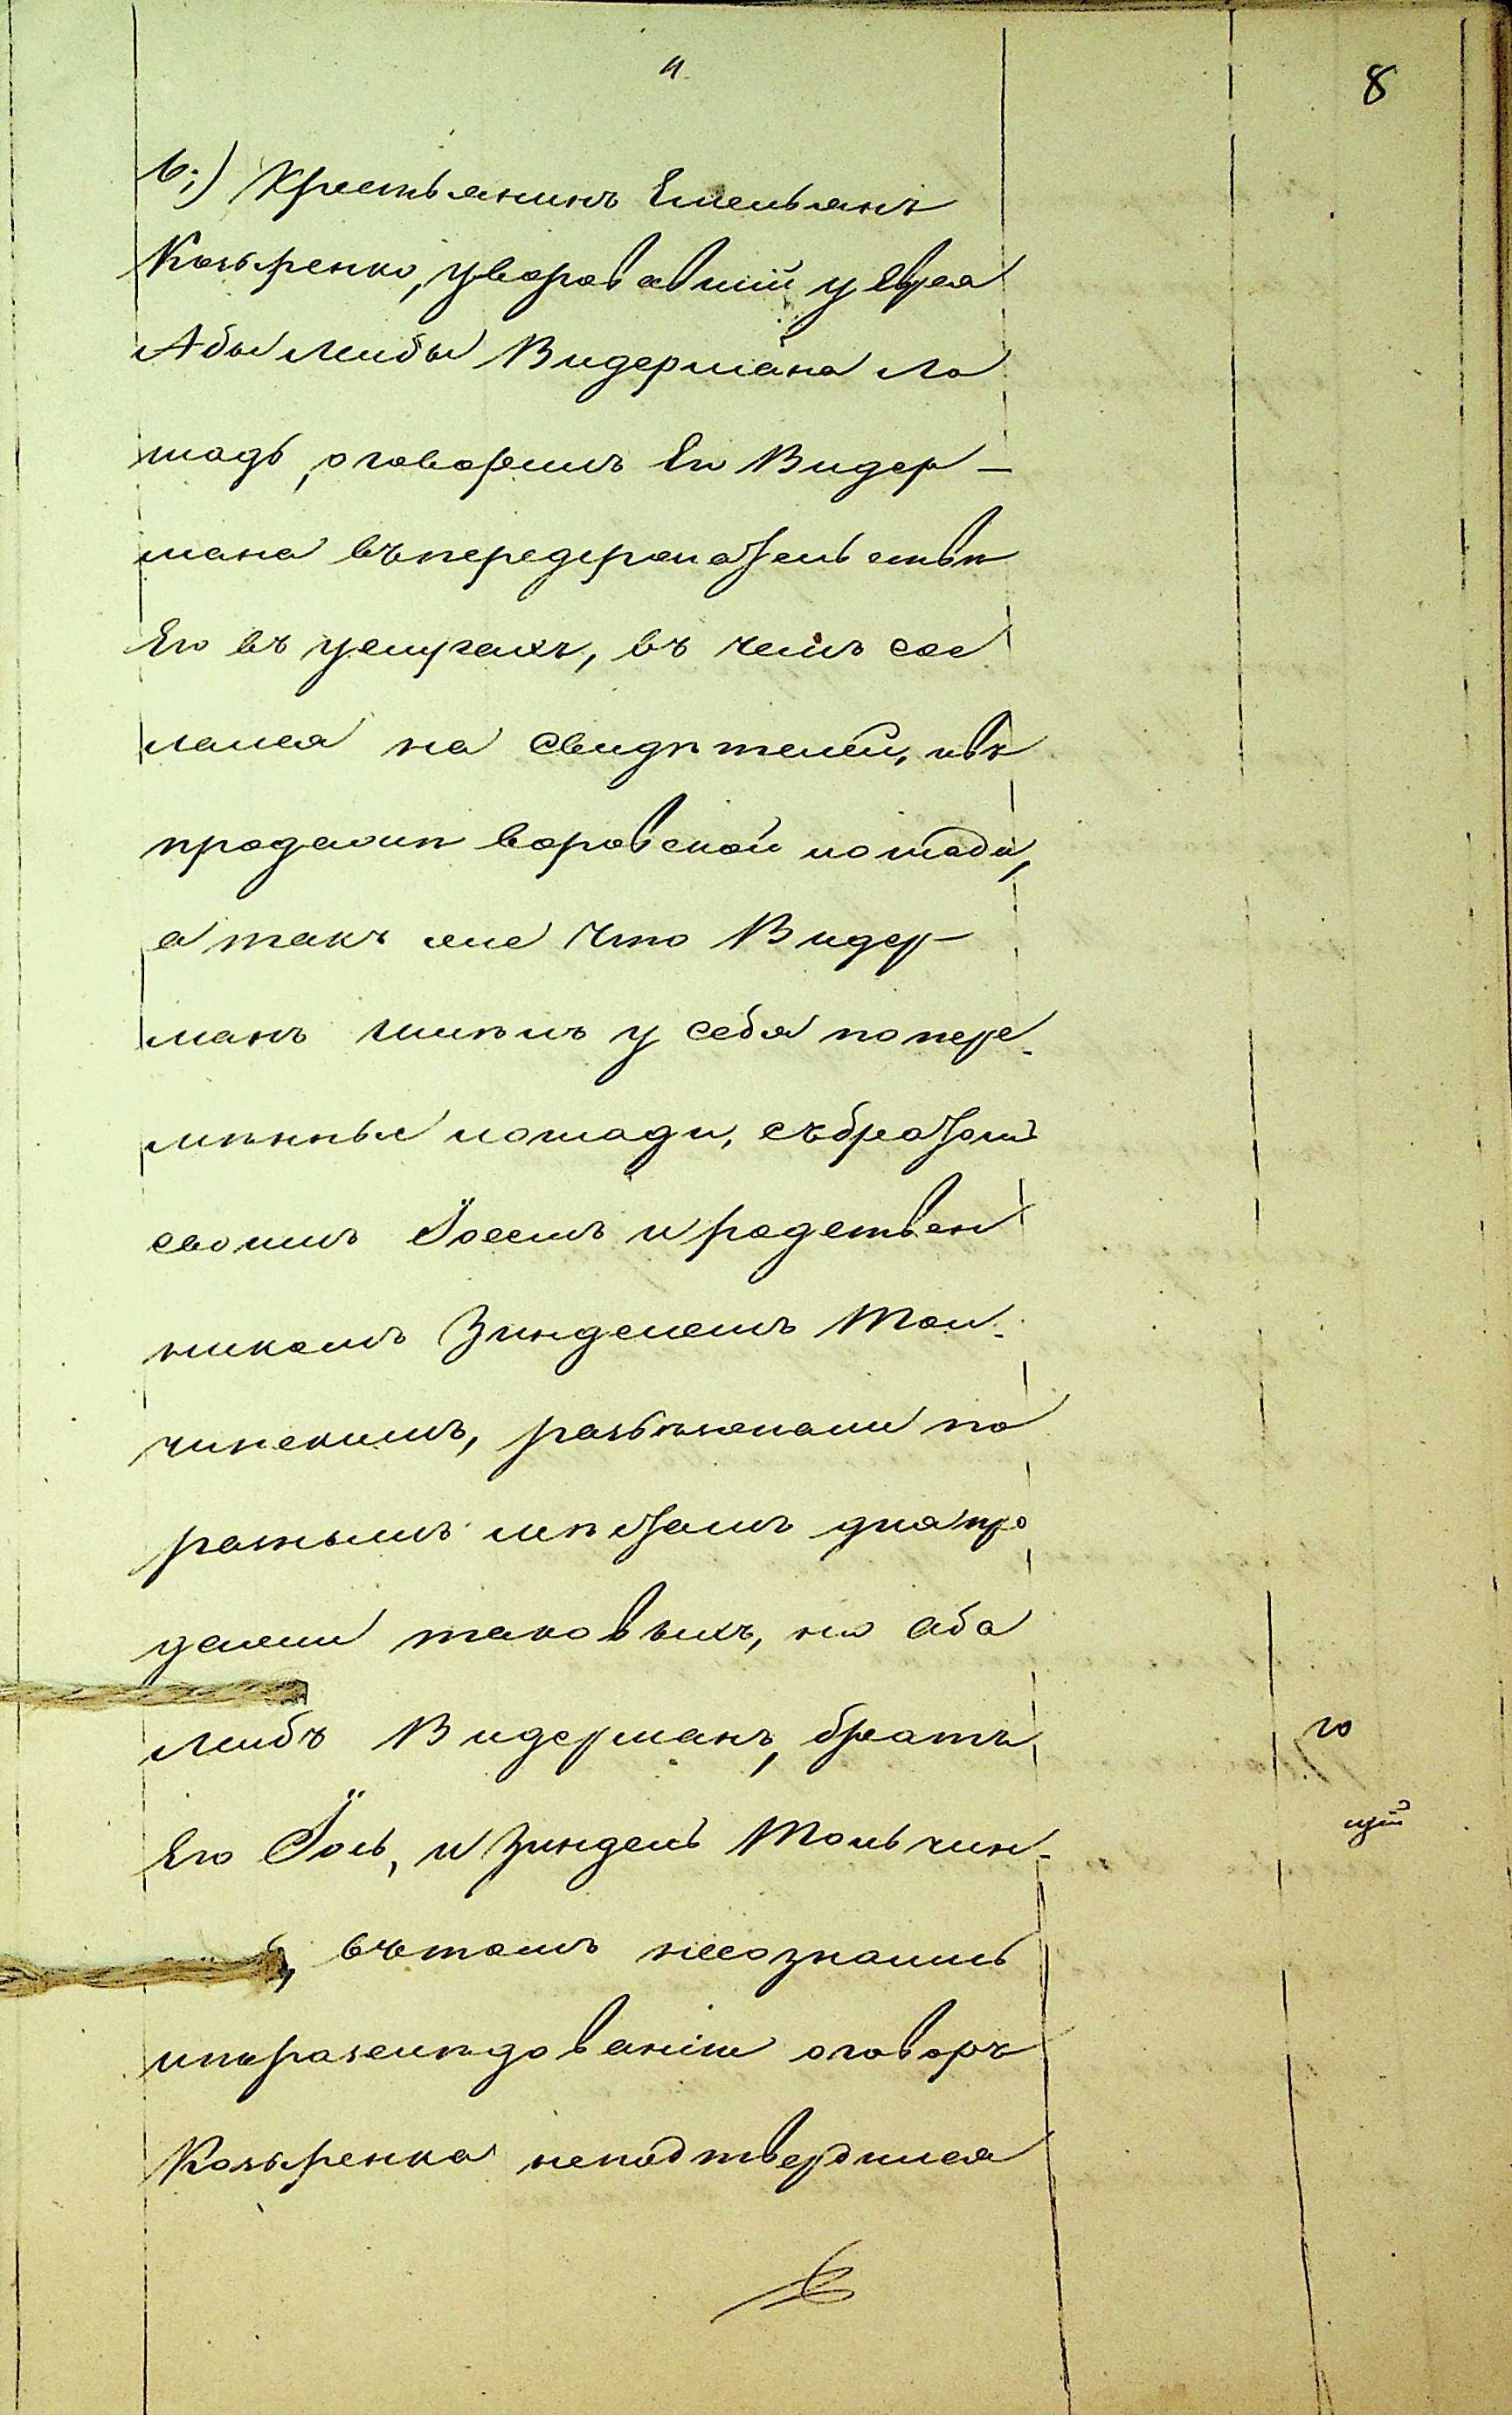 8
в;) Крестьянинъ Емельянъ
Козыренко, уворовавшій у Еврея
Абы Лейбы Видермана ло
шадь, оговорилъ Его Видер-
мана въ передержательствѣ
Его въ услугахъ, въ чемъ сос
лался на свидѣтелей, и въ
продажѣ воровской лошади,
а такъ же что Видер-
манъ имѣлъ у себя попере-
мѣнныя лошади, съ братомъ
своимъ Іосемъ и родствен
никомъ Зинделемъ Толь-
чинскимъ, разъѣзжали по
разнымъ мѣстамъ для про
дажи таковыхъ, но Аба
Лейбъ Видерманъ, братъ
Его Іось, и Зиндель Тольчин-
въ томъ несознались
и по разслѣдованію оговоръ
Козыренка неподтвердился
го
щій